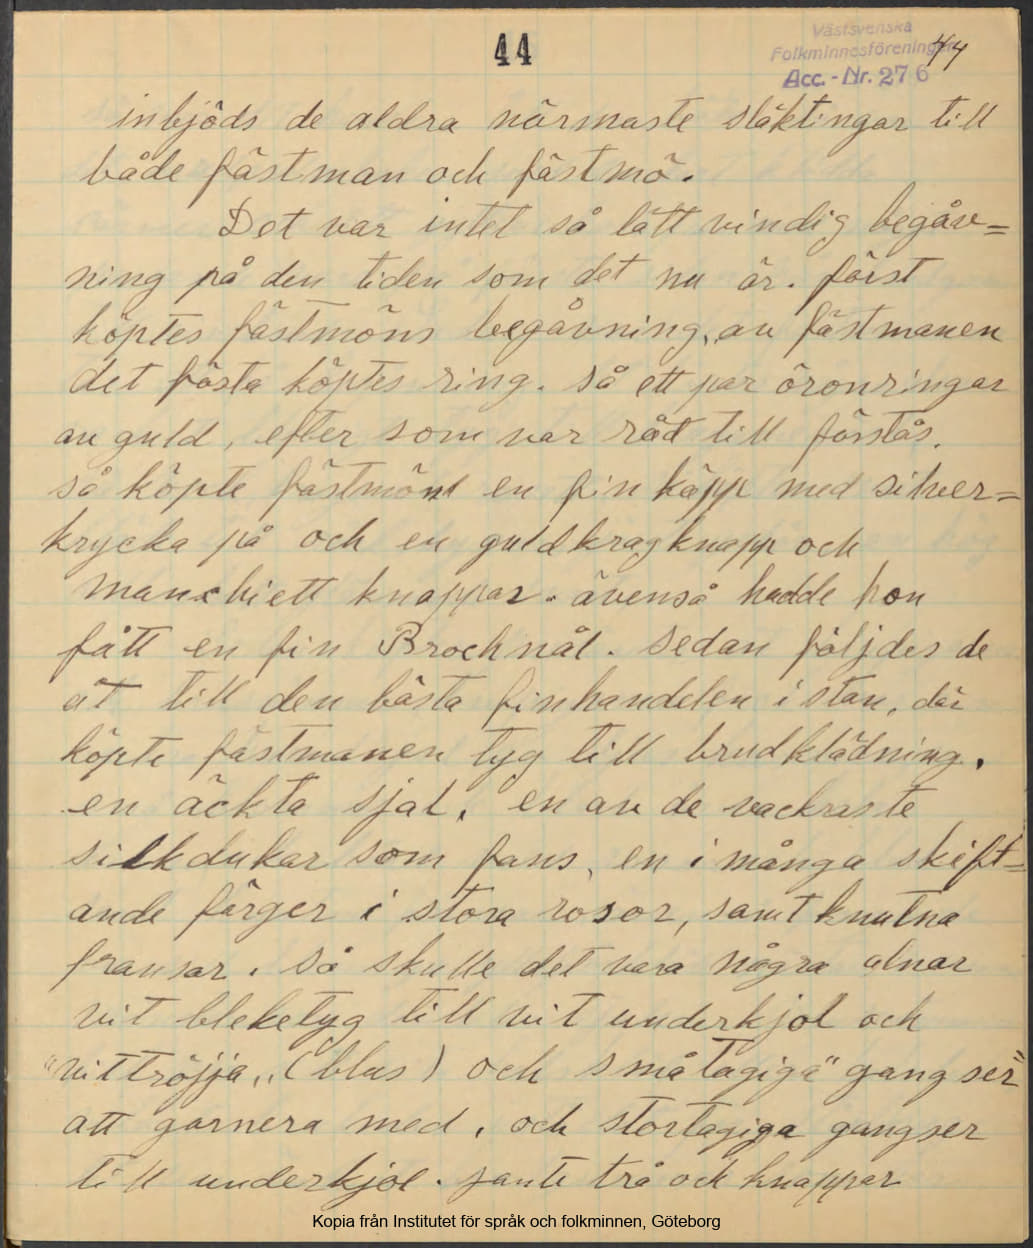 44
Västsvenska
Folkminnesföreningen
44
Acc. - Nr. 276
inbjöds de aldra närmaste släktingar till
både fästman och fästmö.
Det var intet så lätt vindig begåv=
ning på den tiden som det nu är. först
köptes fästmöns begåvning, av fästmanen
det fösta köptes ring. så ett par öronringar
av guld, efter som var råd till förstås.
så köpte fästmön en fin käpp med silver=
krycka på och en guldkragknapp och
manschett knappar. ävenså hadde hon
fått en fin Brochnål. sedan följdes de
åt till den bästa finhandelen i stan, där
köpte fästmanen tyg till brudklädning.
en äckta sjal, en av de vackraste
silkdukar som fans, en i många skift=
ande färger i stora rosor, samt knutna
fransar. så skulle det vara några alnar
vit bleketyg till vit underkjol och
"vittröjja" (blus) och småtagiga "gangser"
att garnera med, och stortagiga gangser
till underkjol. trå och knappar
Kopia från Institutet för språk och folkminnen, Göteborg